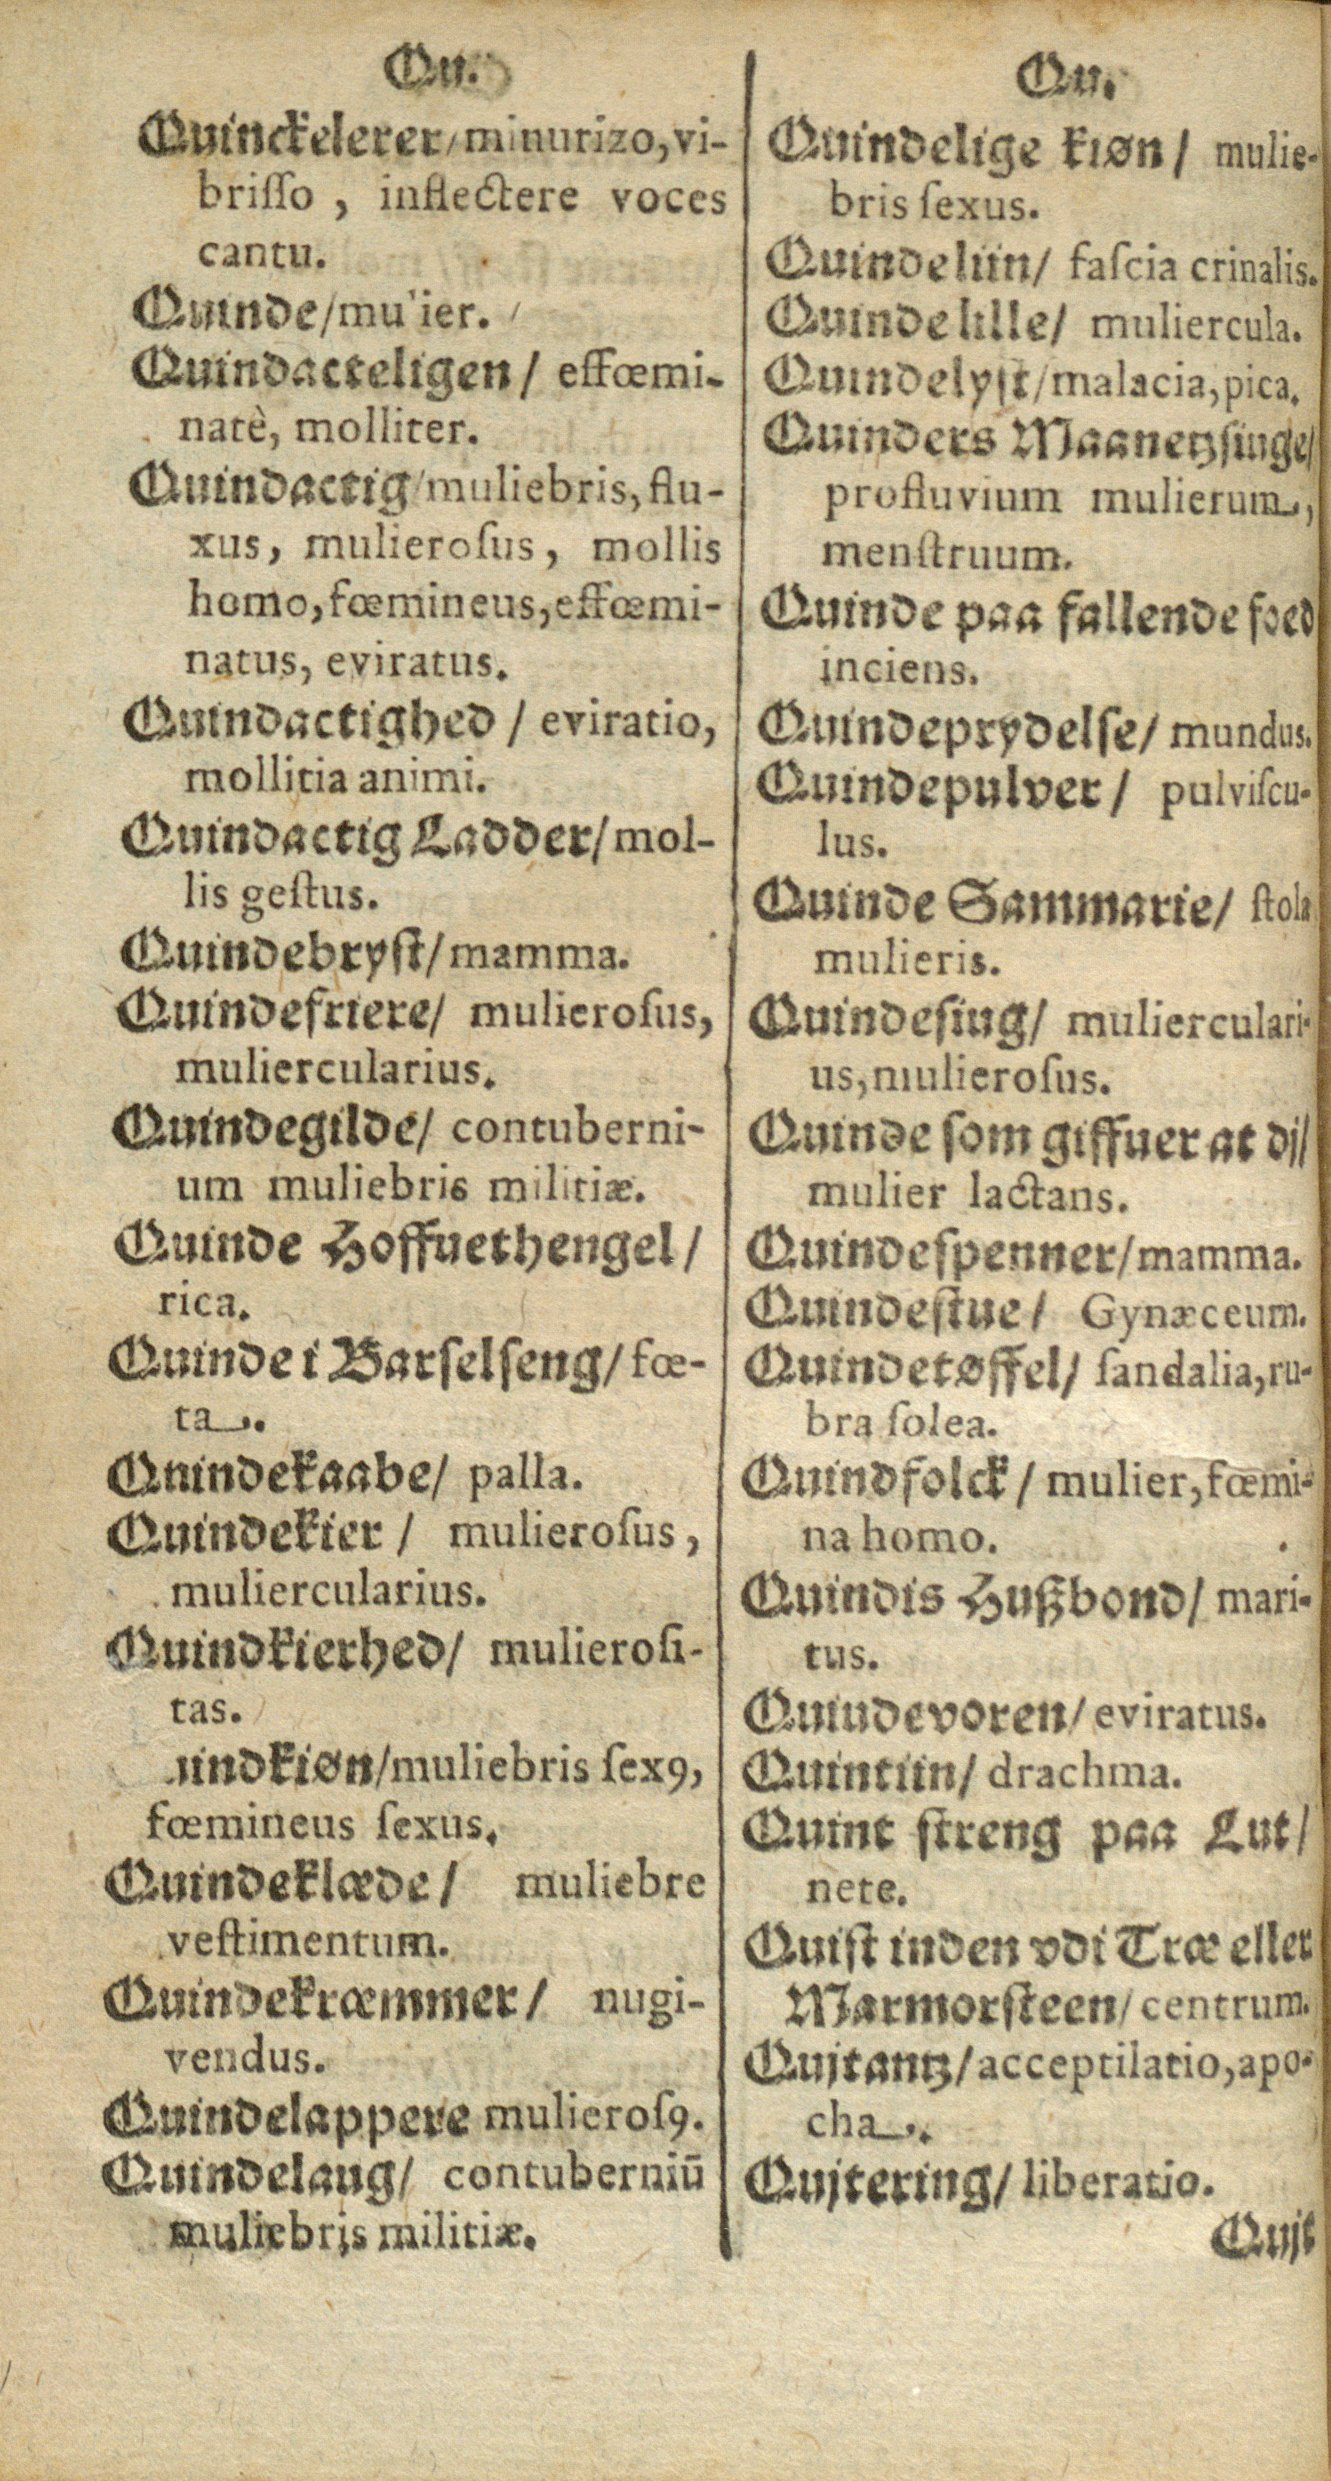 Qu.
Quinckelerer/minurizo, vi-
briſſo, inflectere voces
cantu.
Quinde/mulier.
Quindacteligen/ effœmi-
natè, molliter.
Quindactig/muliebris, flu-
xus, mulieroſus, mollis
homo, fœmineus, effœmi-
natus, eviratus.
Quindactighed / eviratio,
mollitia animi.
Quindactig Ladder/mol-
lis geſtus.
Quindebryſt/mamma.
Quindefriere/ mulieroſus,
muliercularius.
Quindegilde/ contuberni-
um muliebris militiæ.
Quinde Hoffuethengel/
rica.
Quinde i Barſelſeng/ fœ-
ta.
Qnindekaabe/ palla.
Quindekier / mulieroſus,
muliercularius.
Quindkierhed/ mulieroſi-
tas.
uindkiøn/muliebris ſexꝰ,
fœmineus ſexus.
Quindeklæde/ muliebre
veſtimentum.
Quindekræmmer/ nugi-
vendus.
Quindelappere mulieroſꝰ.
Quindelaug/ contuberniū
muliebris militiæ.
Qu.
Quindelige kiøn/ mulie-
bris ſexus.
Quindeliin/ faſcia crinalis.
Quinde lille/ muliercula.
Quindelyſt/malacia, pica.
Quinders Maanetzſiuge/
profluvium mulierum,
menſtruum.
Quinde paa fallende foed
inciens.
Quindeprydelſe/ mundus.
Quindepulver/ pulviſcu-
lus.
Quinde Sammarie/ ſtola
mulieris.
Quindeſiug/ mulierculari-
us, mulieroſus.
Quinde ſom giffuer at di/
mulier lactans.
Quindeſpenner/mamma.
Quindeſtue/ Gynæceum.
Quindetøffel/ ſandalia, ru-
bra ſolea.
Quindfolck/ mulier, fœmi-
na homo.
Quindis Hußbond/ mari-
tus.
Quiudevoren/ eviratus.
Quintiin/ drachma.
Quint ſtreng paa Lut/
nete.
Quiſt inden vdi Træ eller
Marmorſteen/ centrum.
Qujtantz/acceptilatio, apo-
cha.
Qujtering/ liberatio.
Qujt